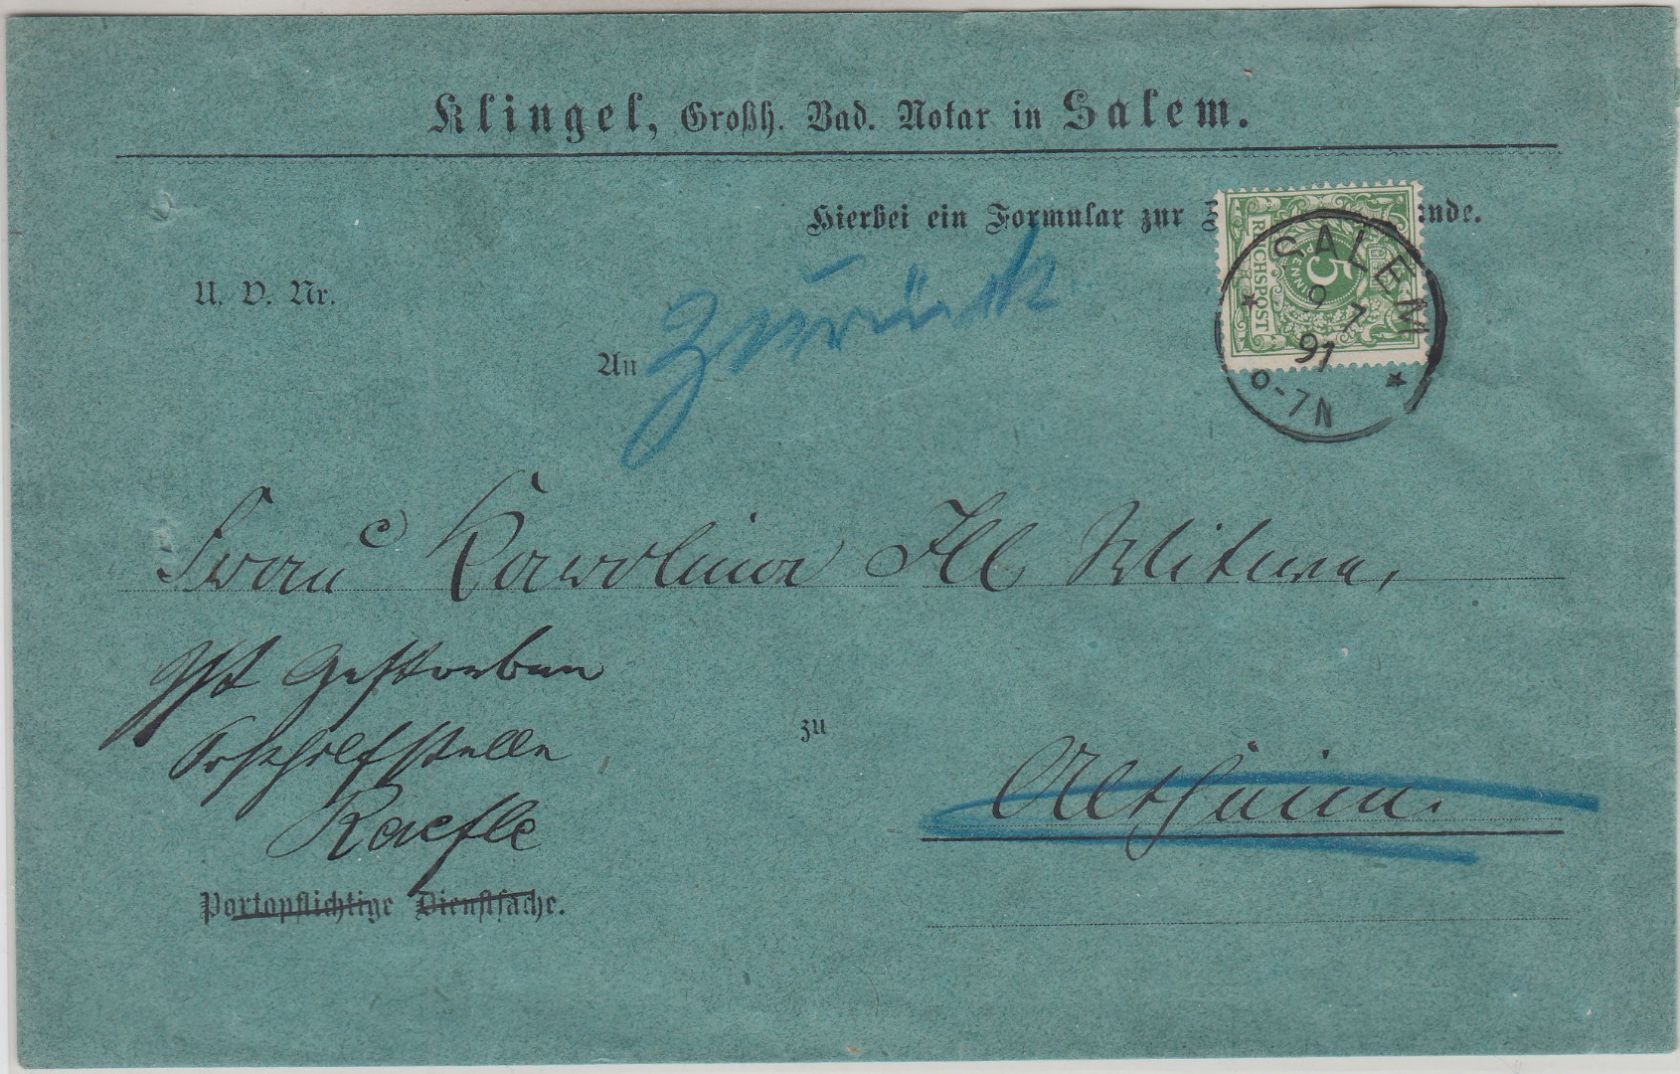 Klingel, Großh. Bad. Notar in Salem.
Hierbei ein Formular zur
U. V. Nr.
REICHSPOST
5
PFENNIG
SALEM
9 7
91
6-7N
An
Zurück
Frau Karolina Ill Witwe,
Ist gestorben
Posthilfstelle
Kaefle
zu
Altheim.
Portopflichtige Dienstsache.